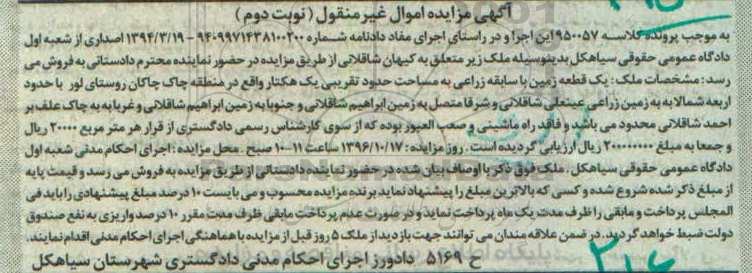 آگهی مزایده اموال غیر منقول (نوبت دوم)
به موجب پرونده کلاسه ۹۵۰۰۵۷ این اجرا و در راستای اجرای مفاد دادنامه شماره ۹۴۰۹۹۷۱۴۳۸۱۰۰۲۰۰ - ۱۳۹۴/۳/۱۹ اصداری از شعبه اول
دادگاه عمومی حقوقی سیاهکل بدینوسیله ملک زیر متعلق به کیهان شاقلانی از طریق مزایده در حضور نماینده محترم دادستانی به فروش می
رسد: مشخصات ملک: یک قطعه زمین با سابقه زراعی به مساحت حدود تقریبی یک هکتار واقع در منطقه چاک چاکان روستای لور با حدود
اربعه شمالا به به زمین زراعی عینعلی شاقلانی و شرقا متصل به زمین ابراهیم شاقلانی و جنوبا به زمین ابراهیم شاقلانی و غربا به به چاک علف بر
احمد شاقلانی محدود می باشد و فاقد راه ماشینی و صعب العبور بوده که از سوی کارشناس رسمی دادگستری از قرار هر متر مربع ۲۰۰۰۰ ریال
و جمعا به مبلغ ۲۰۰۰۰۰۰۰۰ ریال ارزیابی گردیده است. روز مزایده: ۱۳۹۶/۱۰/۱۷ ساعت ۱۱-۱۰ صبح. محل مزایده: اجرای احکام مدنی شعبه اول
دادگاه عمومی حقوقی سیاهکل. ملک فوق ذکر با اوصاف بیان شده در حضور نماینده دادستانی از طریق مزایده به فروش می رسد و قیمت پایه
از مبلغ ذکر شده شروع شده و کسی که بالاترین مبلغ را پیشنهاد نماید برنده مزایده محسوب و می بایست ۱۰ درصد مبلغ پیشنهادی را باید فی
المجلس پرداخت و مابقی را ظرف مدت یک ماه پرداخت نماید و در صورت عدم پرداخت مابقی ظرف مدت مقرر ۱۰ درصد واریزی به نفع صندوق
دولت ضبط خواهد گردید. در ضمن علاقه مندان می توانند جهت بازدید از ملک ۵ روز قبل از مزایده با هماهنگی اجرای احکام مدنی اقدام نمایند.
ح ۵۱۶۹ دادورز اجرای احکام مدنی دادگستری شهرستان سیاهکل